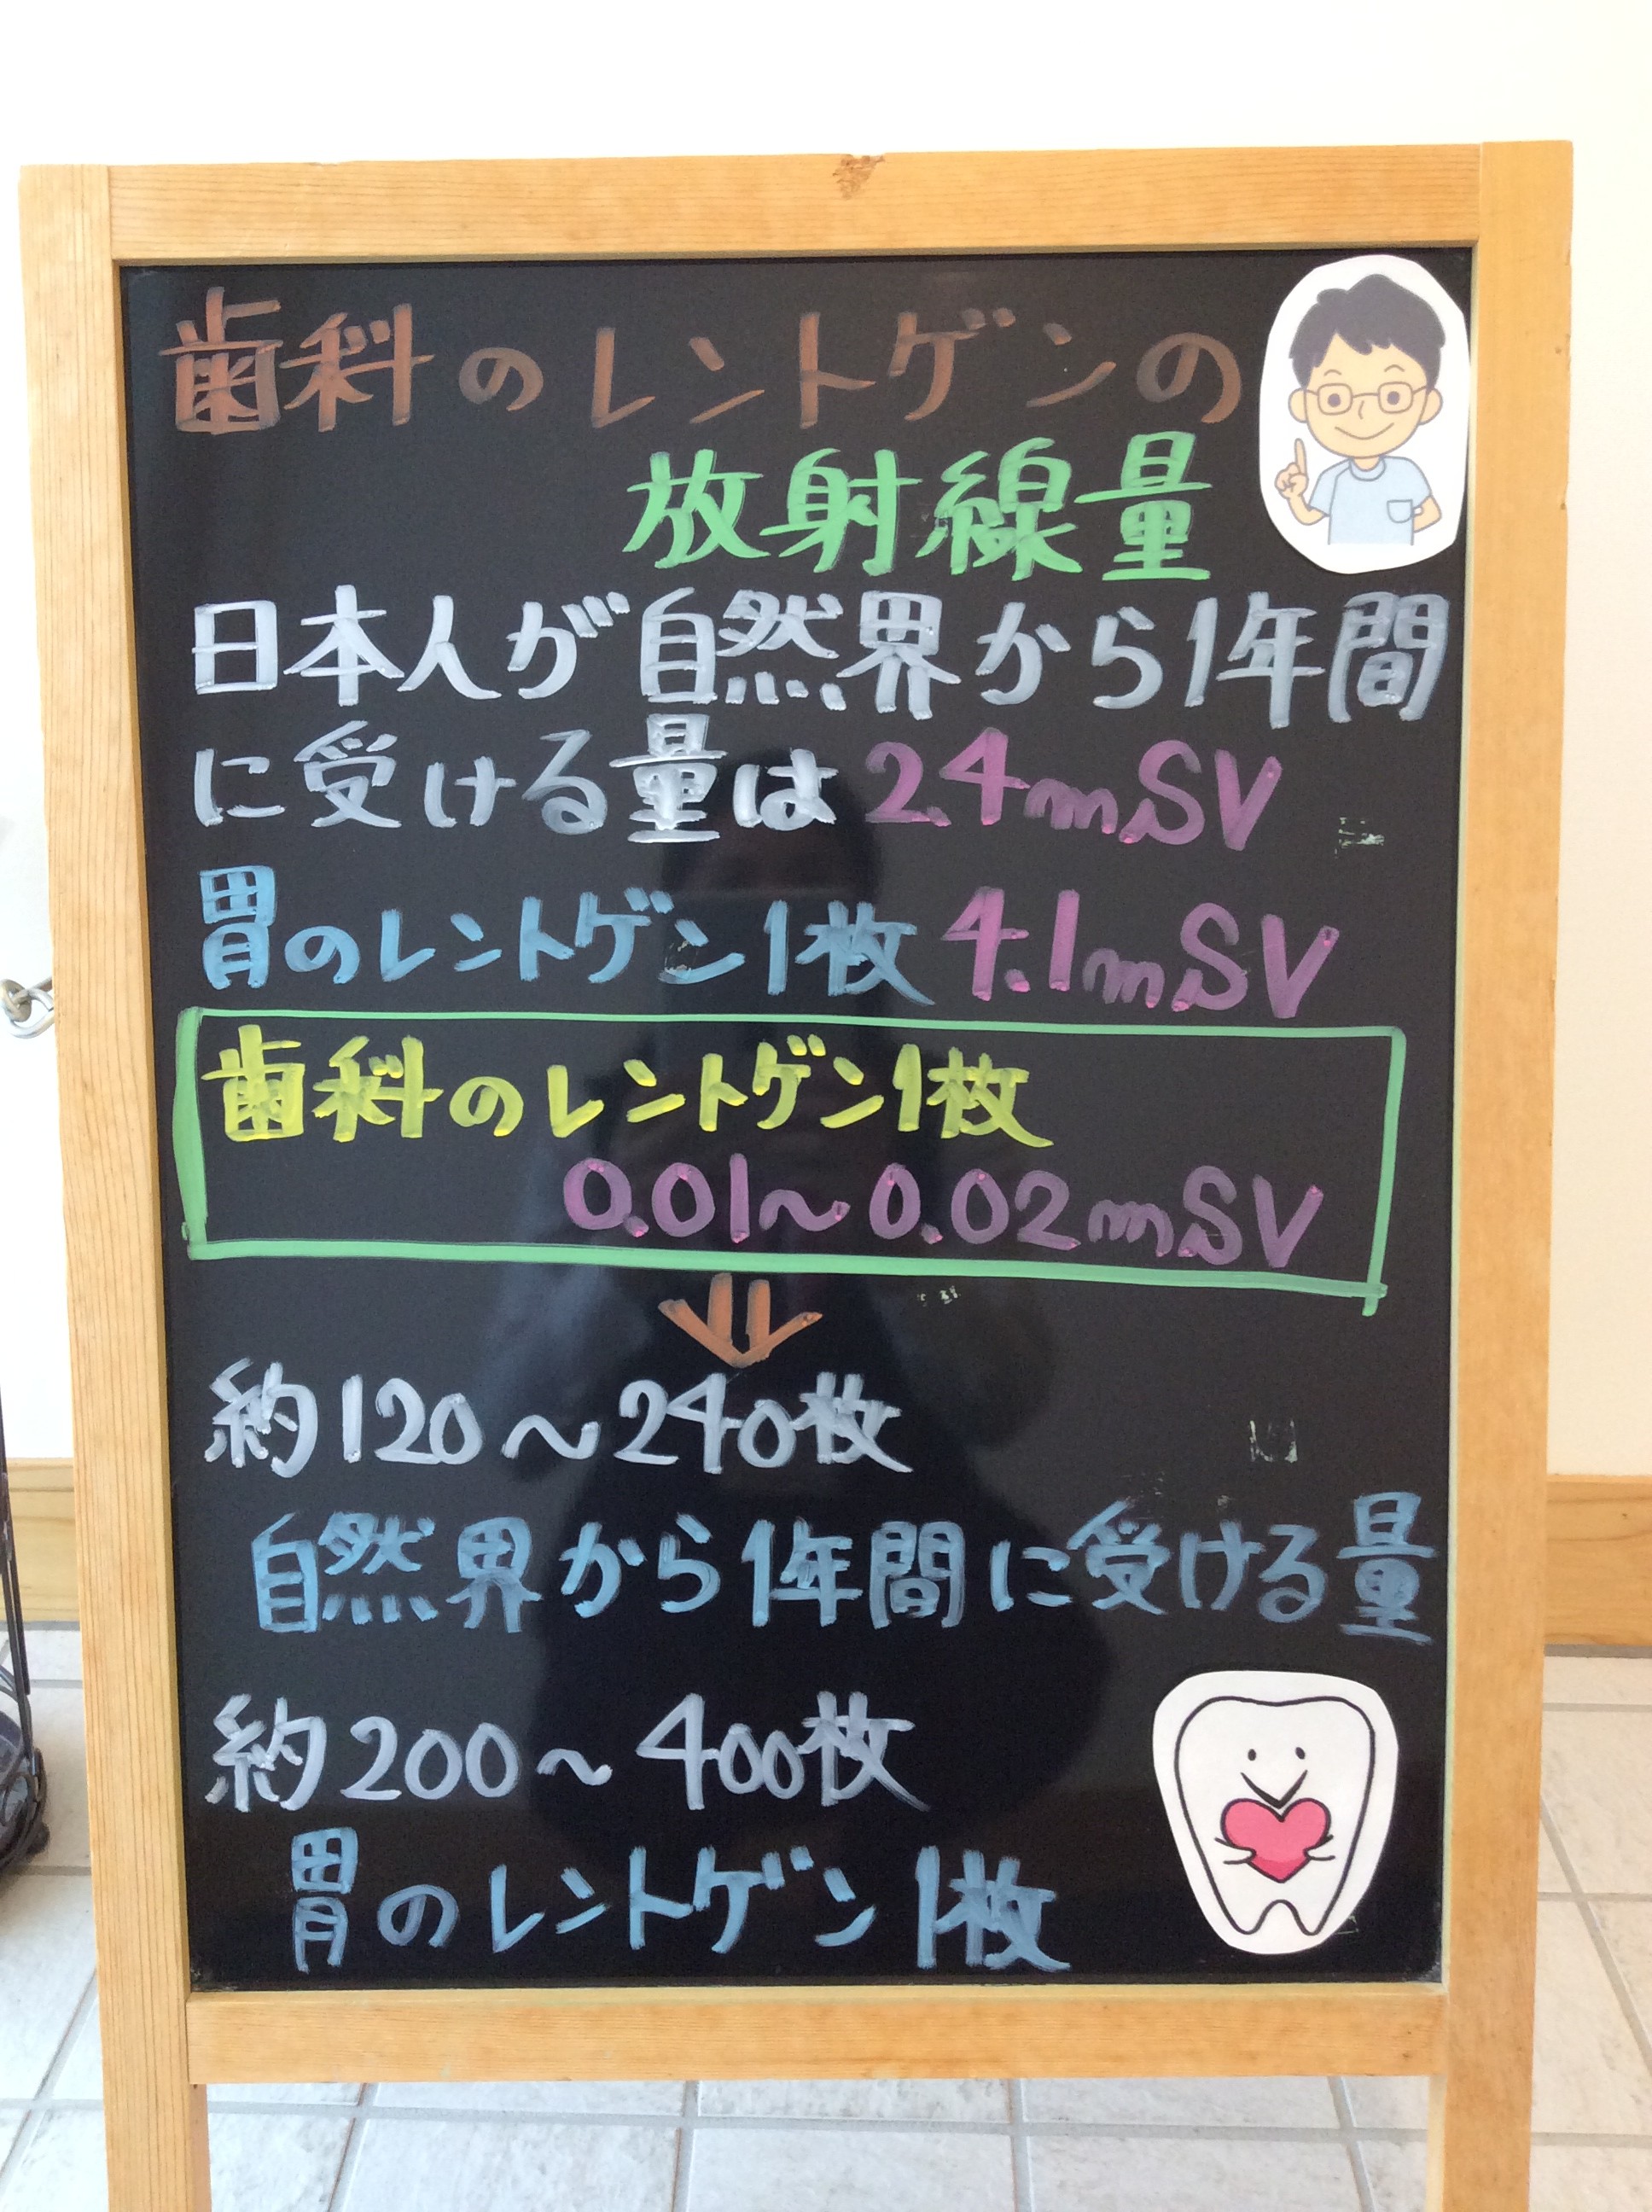 歯科のレントゲンの
放射線量
日本人が自然界から1年間
に受ける量は2.4mSV
胃のレントゲン1枚4.1mSV
歯科のレントゲン1枚
0.01～0.02mSV
約120～240枚
自然界から1年間に受ける量
約200～400枚
胃のレントゲン1枚